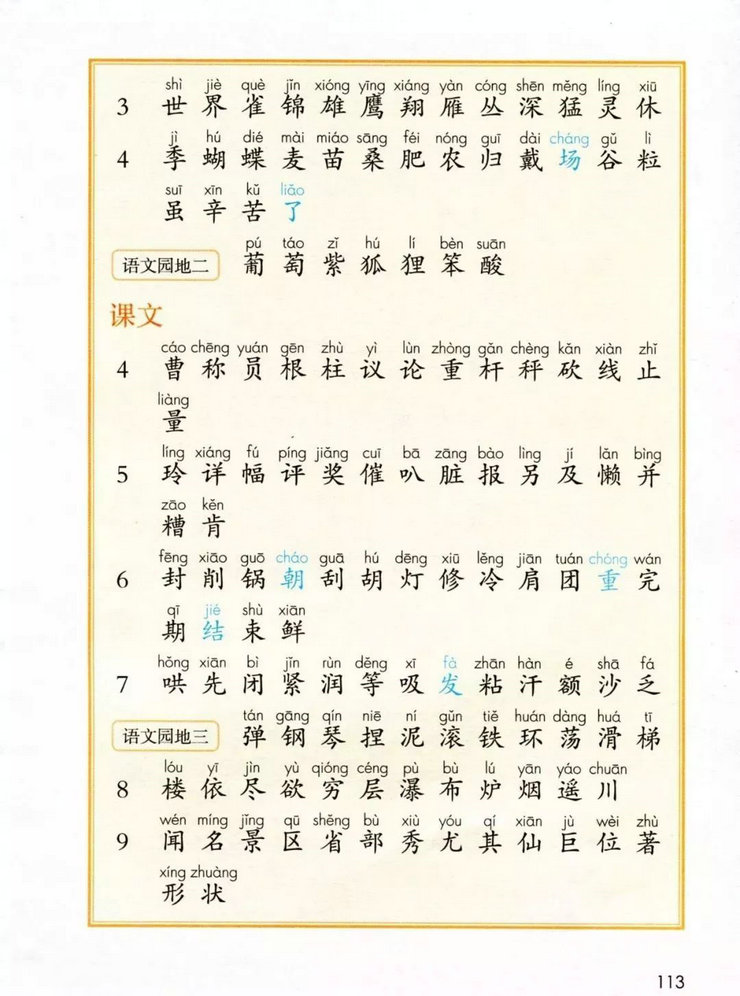 shì jiè què jǐn xióng yīng xiáng yàn cóng shēn měng líng xiū
3 世 界 雀 锦 雄 鹰 翔 雁 丛 深 猛 灵 休
jì hú dié mài miáo sāng féi nóng guī dài cháng gǔ lì
4 季 蝴 蝶 麦 苗 桑 肥 农 归 戴 场 谷 粒
suī xīn kǔ liǎo
虽 辛 苦 了
pú táo zǐ hú lí bèn suān
语文园地二 葡 萄 紫 狐 狸 笨 酸
课文
cáo chēng yuán gēn zhù yì lùn zhòng gǎn chèng kǎn xiàn zhǐ
4 曹 称 员 根 柱 议 论 重 杆 秤 砍 线 止
liàng
量
líng xiáng fú píng jiǎng cuī bā zāng bào lìng jí lǎn bìng
5 玲 详 幅 评 奖 催 叭 脏 报 另 及 懒 并
zāo kěn
糟 肯
fēng xiāo guō cháo guā hú dēng xiū lěng jiān tuán chóng wán
6 封 削 锅 朝 刮 胡 灯 修 冷 肩 团 重 完
qī jié shù xiān
期 结 束 鲜
hǒng xiān bì jǐn rùn děng xī fà zhān hàn é shā fá
7 哄 先 闭 紧 润 等 吸 发 粘 汗 额 沙 乏
tán gāng qín niē ní gǔn tiě huán dàng huá tī
语文园地三 弹 钢 琴 捏 泥 滚 铁 环 荡 滑 梯
lóu yī jìn yù qióng céng pù bù lú yān yáo chuān
8 楼 依 尽 欲 穷 层 瀑 布 炉 烟 遥 川
wén míng jǐng qū shěng bù xiù yóu qí xiān jù wèi zhù
9 闻 名 景 区 省 部 秀 尤 其 仙 巨 位 著
xíng zhuàng
形 状
113